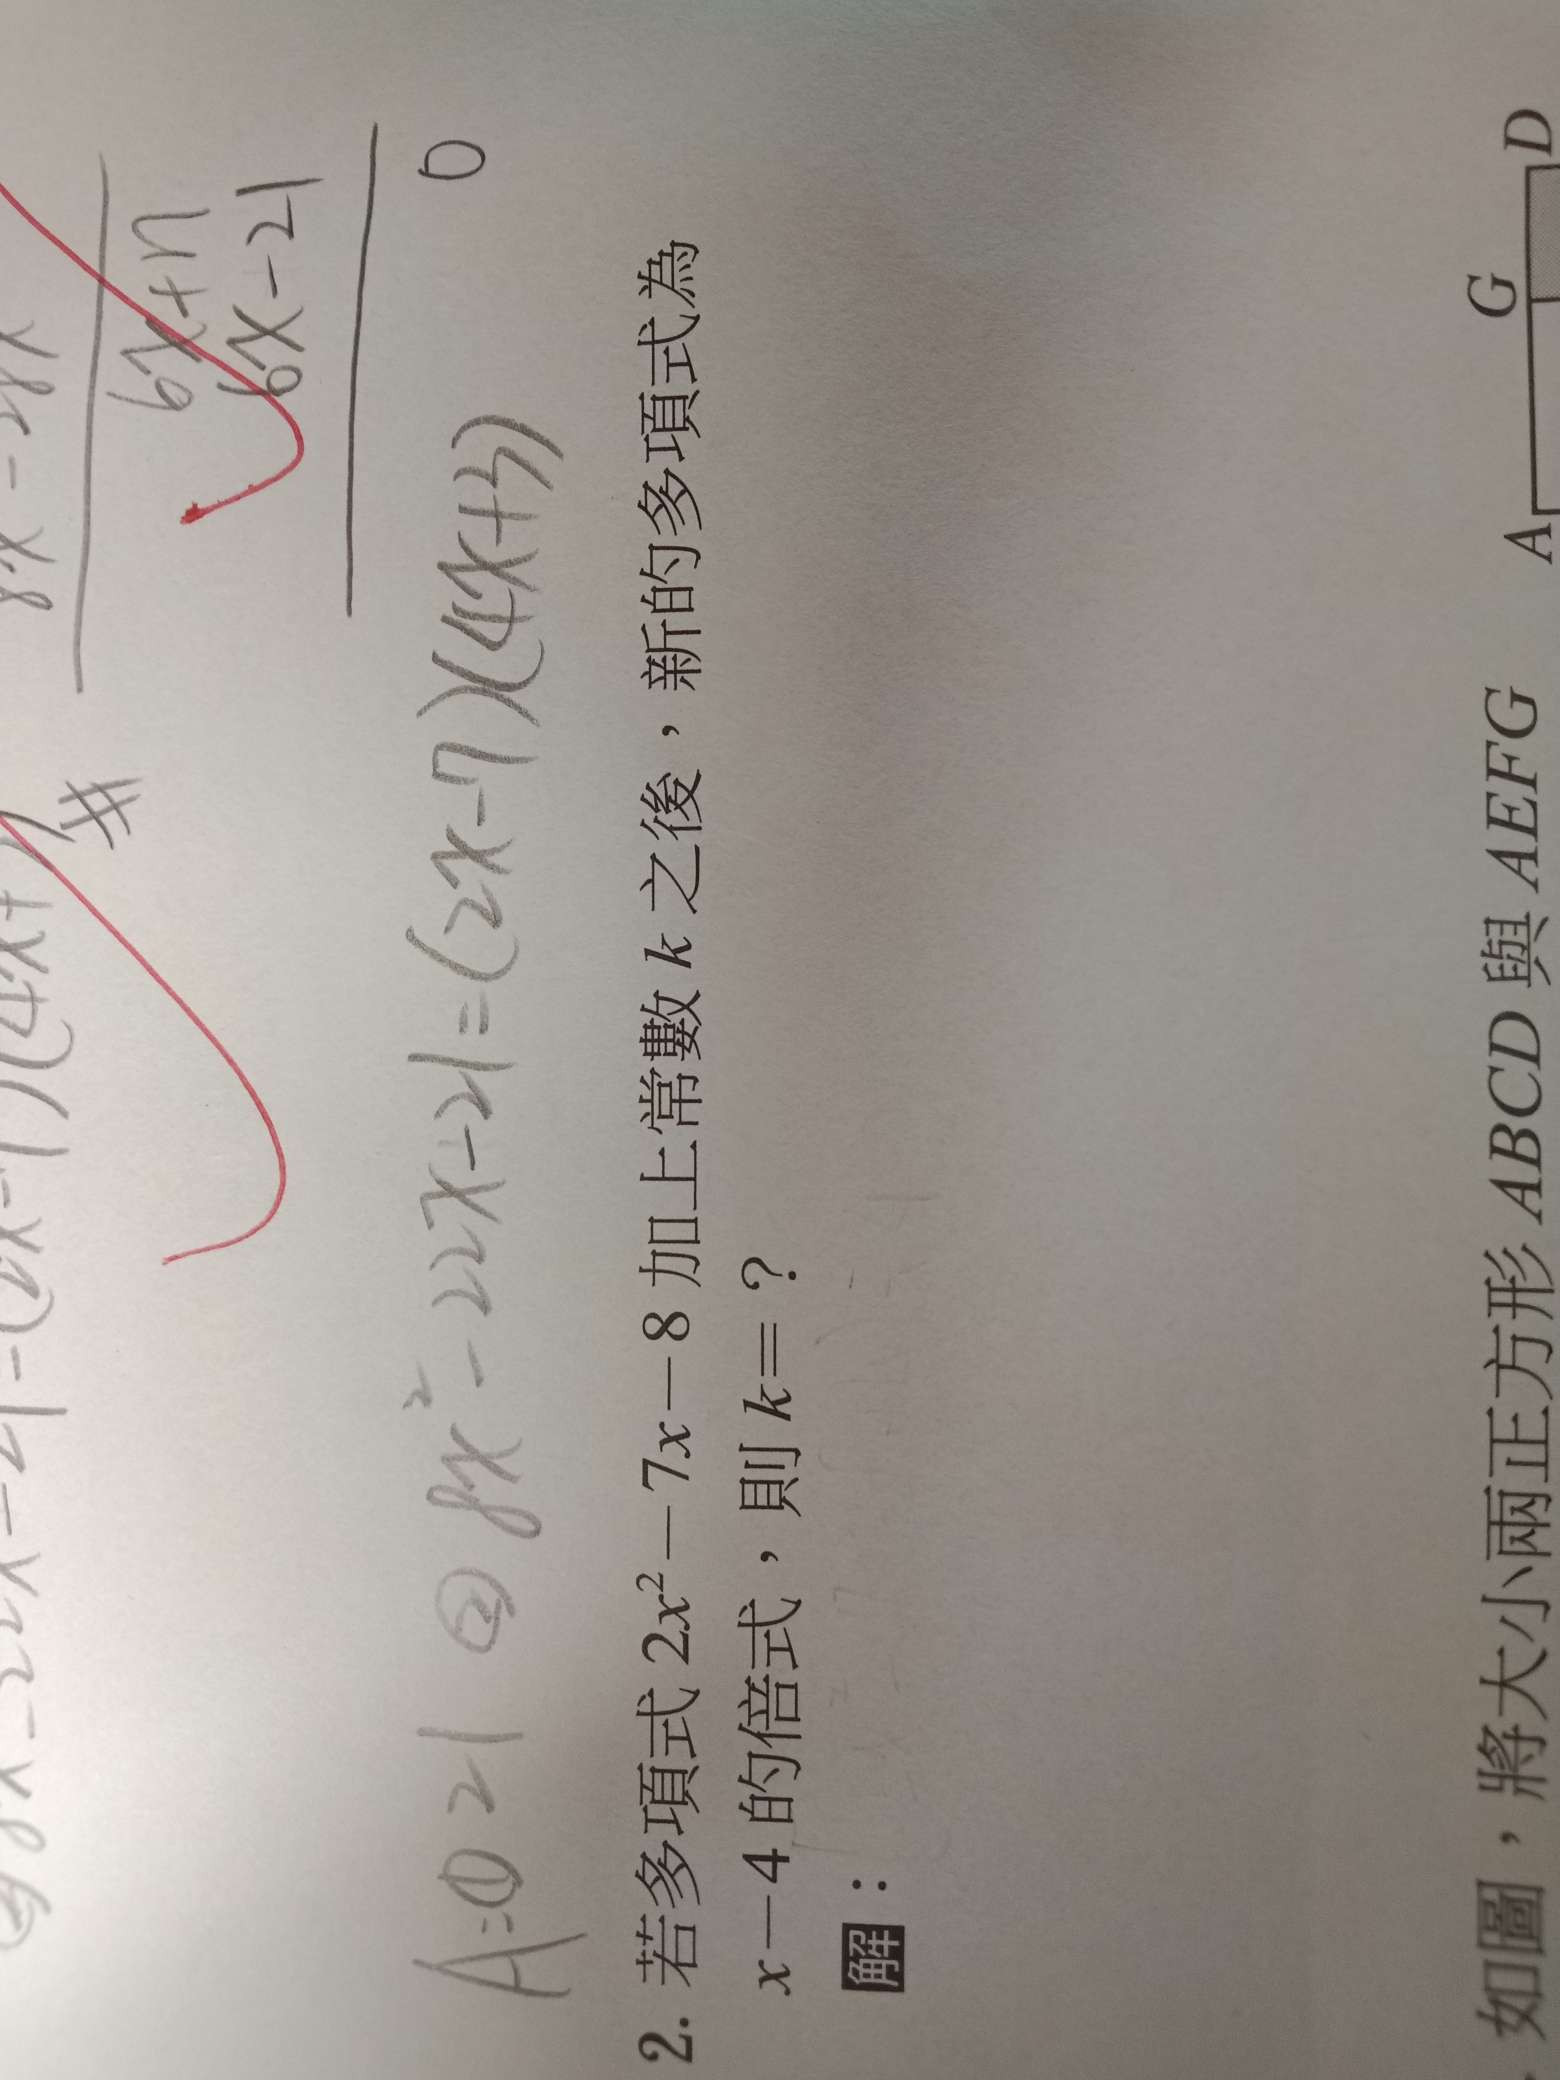 8x-28x
6x+n
6x-21
0
#
A:① 21 ② 8x²-22x-21=(2x-7)(4x+3)
2. 若多項式 2x²－7x－8 加上常數 k 之後，新的多項式為
x－4 的倍式，則 k＝？
解：
如圖，將大小兩正方形 ABCD 與 AEFG
A G D